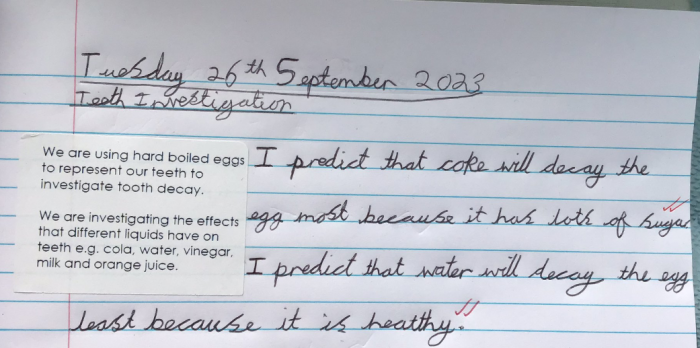 Tuesday 26th September 2023
Teeth Investigation
We are using hard boiled eggs
to represent our teeth to
investigate tooth decay.
We are investigating the effects
that different liquids have on
teeth e.g. cola, water, vinegar,
milk and orange juice.
I predict that coke will decay the
egg most because it has loth of sugar
I predict that water will decay the egg
least because it is healthy.